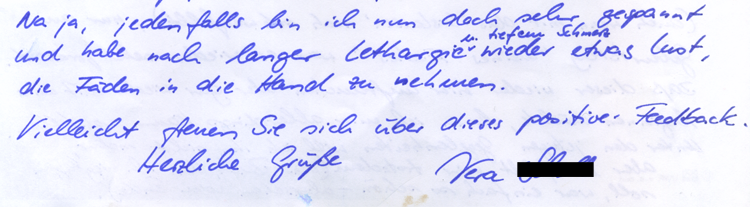 Na ja, jedenfalls bin ich nun doch sehr gespannt
und habe nach langer Lethargie u. tiefem Schmerz wieder etwas Lust,
die Fäden in die Hand zu nehmen.
Vielleicht freuen Sie sich über dieses positive Feedback.
Herzliche Grüße Vera